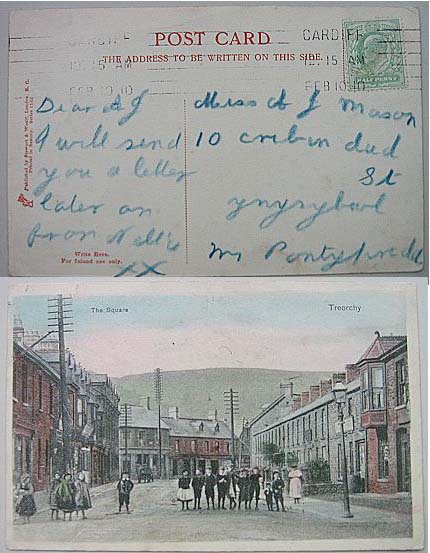 CARDIFF
12.15 AM
FEB 10 10
CARDIFF
12.15 AM
FEB 10 10
POST CARD.
THE ADDRESS TO BE WRITTEN ON THIS SIDE.
HALF PENNY
Published by Stewart & Woolf, London, E. C.
Printed in Saxony. Series
Dear A J
I will send
you a letter
later on
from Nellie
XX
Write Here.
For Inland use only.
Miss A J Mason
10 cribin ddu
St
ynysybwl
nr Pontypridd
The Square
Treorchy